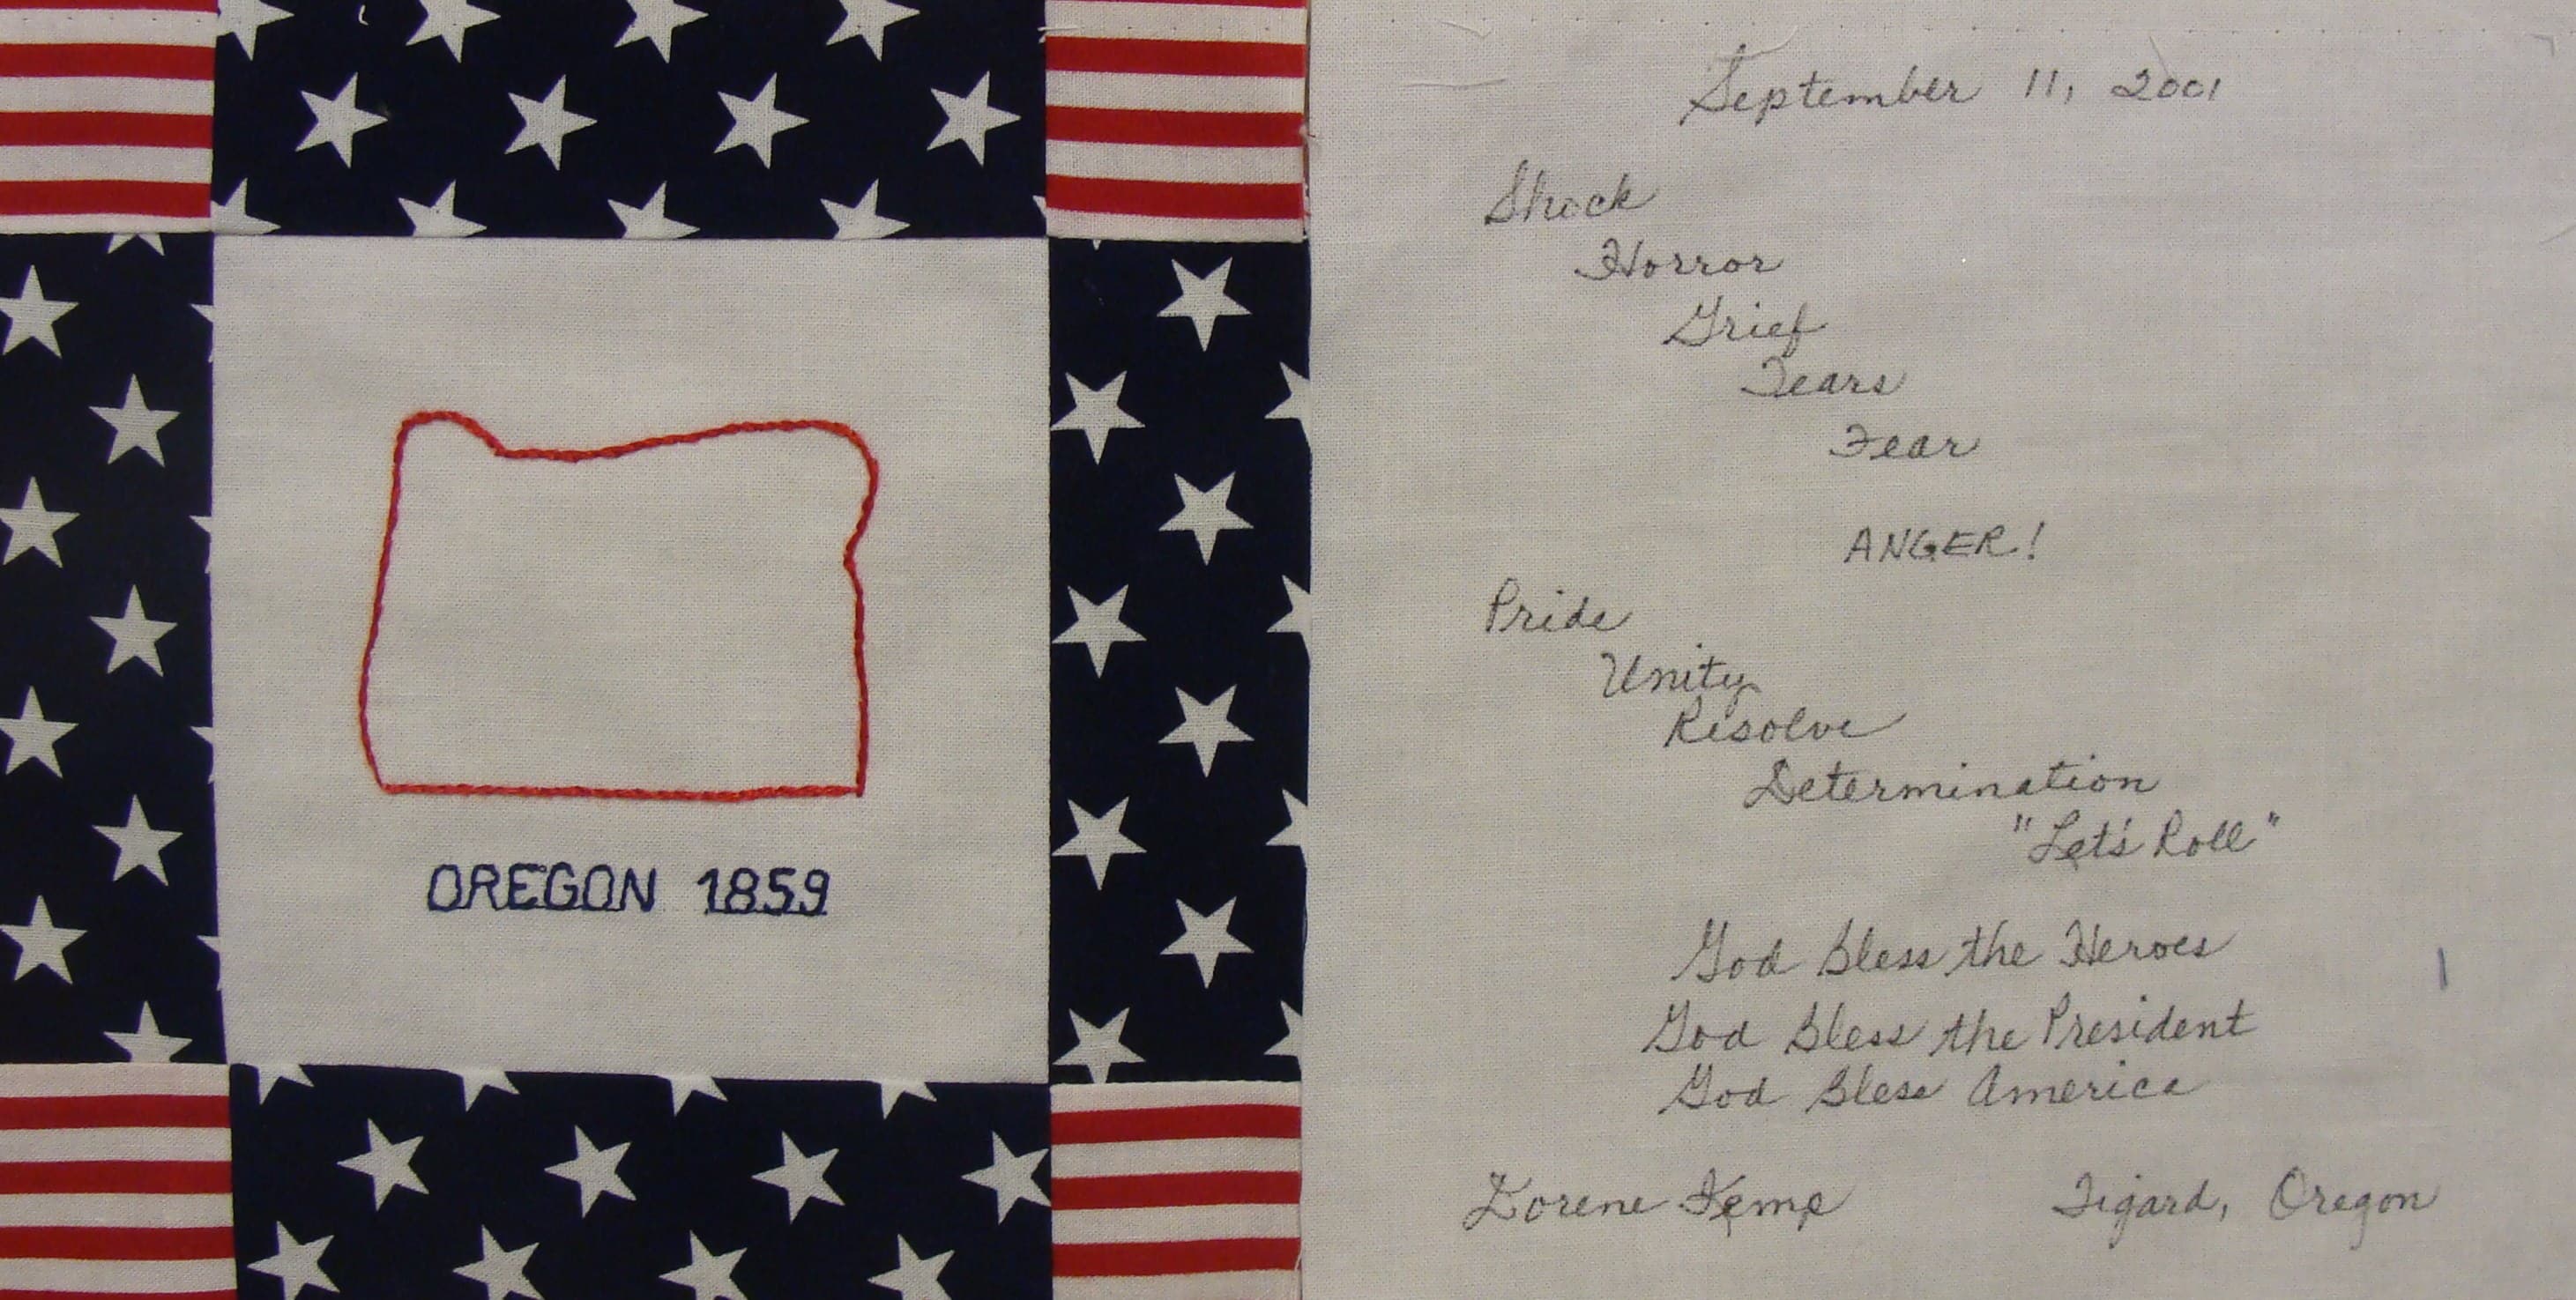 OREGON 1859
September 11, 2001
Shock
Horror
Grief
Tears
Fear
ANGER!
Pride
Unity
Resolve
Determination
"Let's Roll"
God Bless the Heroes
God Bless the President
God Bless America
Lorene Kemp Tigard, Oregon